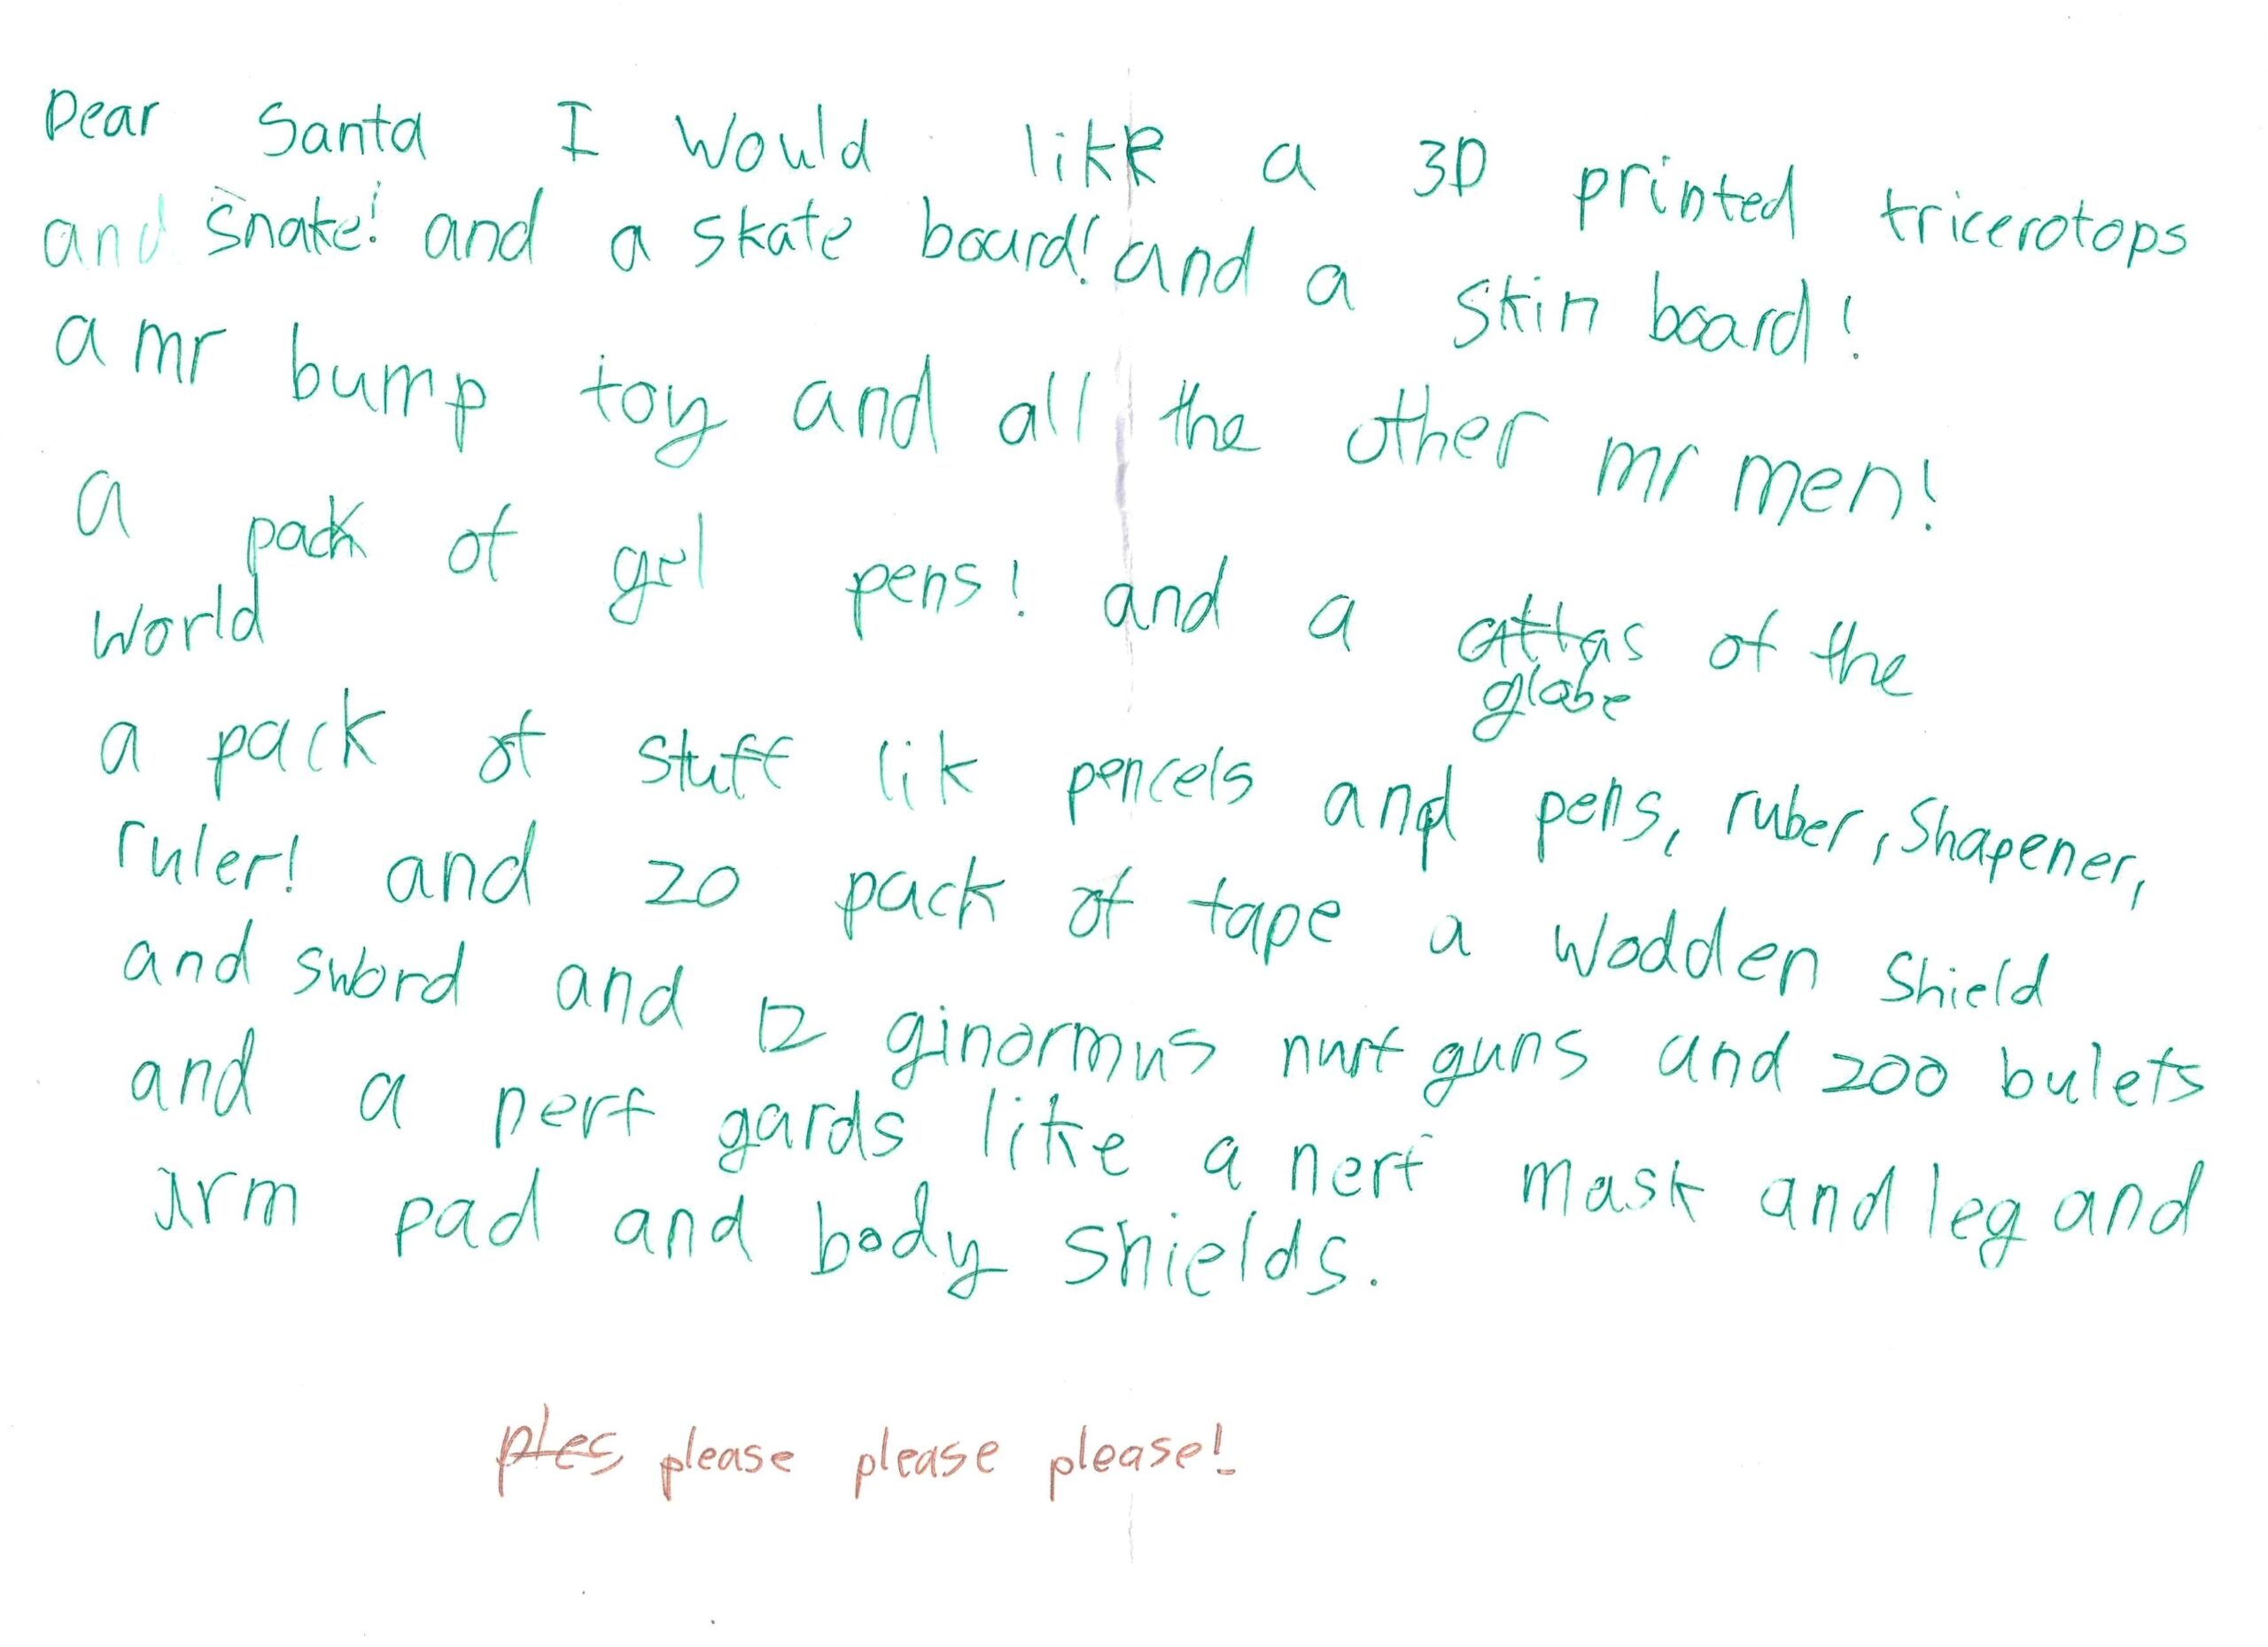 Dear Santa I would like a 3D printed tricerotops
and snake! and a skate board! and a skin board!
a mr bump toy and all the other mr men!
a pack of gel pens! and a attas of the
globe
world
a pack of stuff lik pencels and pens, ruber, shapener,
ruler! and 20 pack of tape a wodden shield
and sword and 12 ginormus nurf guns and 200 bulets
and a nerf gards like a nerf mask and leg and
arm pad and body shields.
ples please please please!